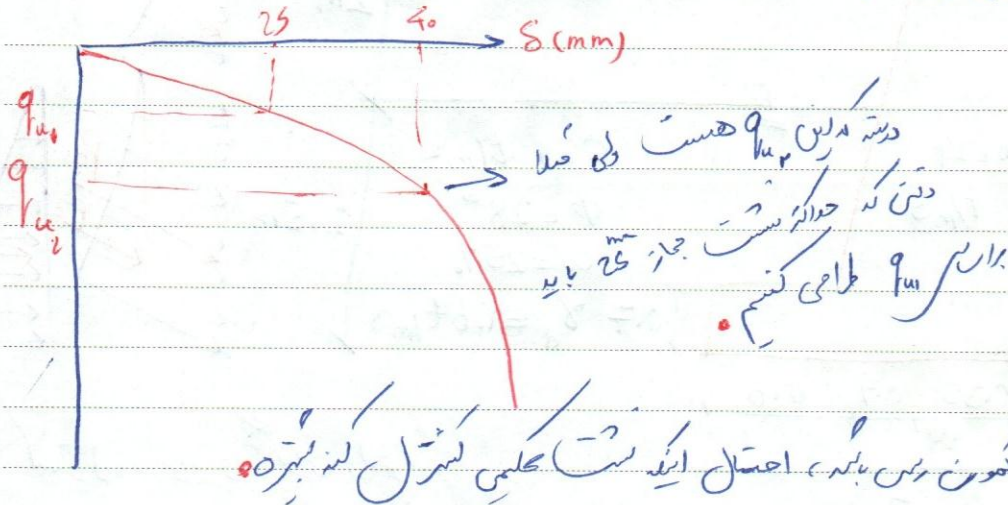 25 40
δ (mm)
q u1
q u2
درسته که این q u2 هست ولی فعلا
وقتی که حداکثر نشست مجاز 25 mm باید
براساس q u1 طراحی کنیم.
رسی باشد، احتمال اینکه نشست تحکیمی کنترل کنه بیشتره.